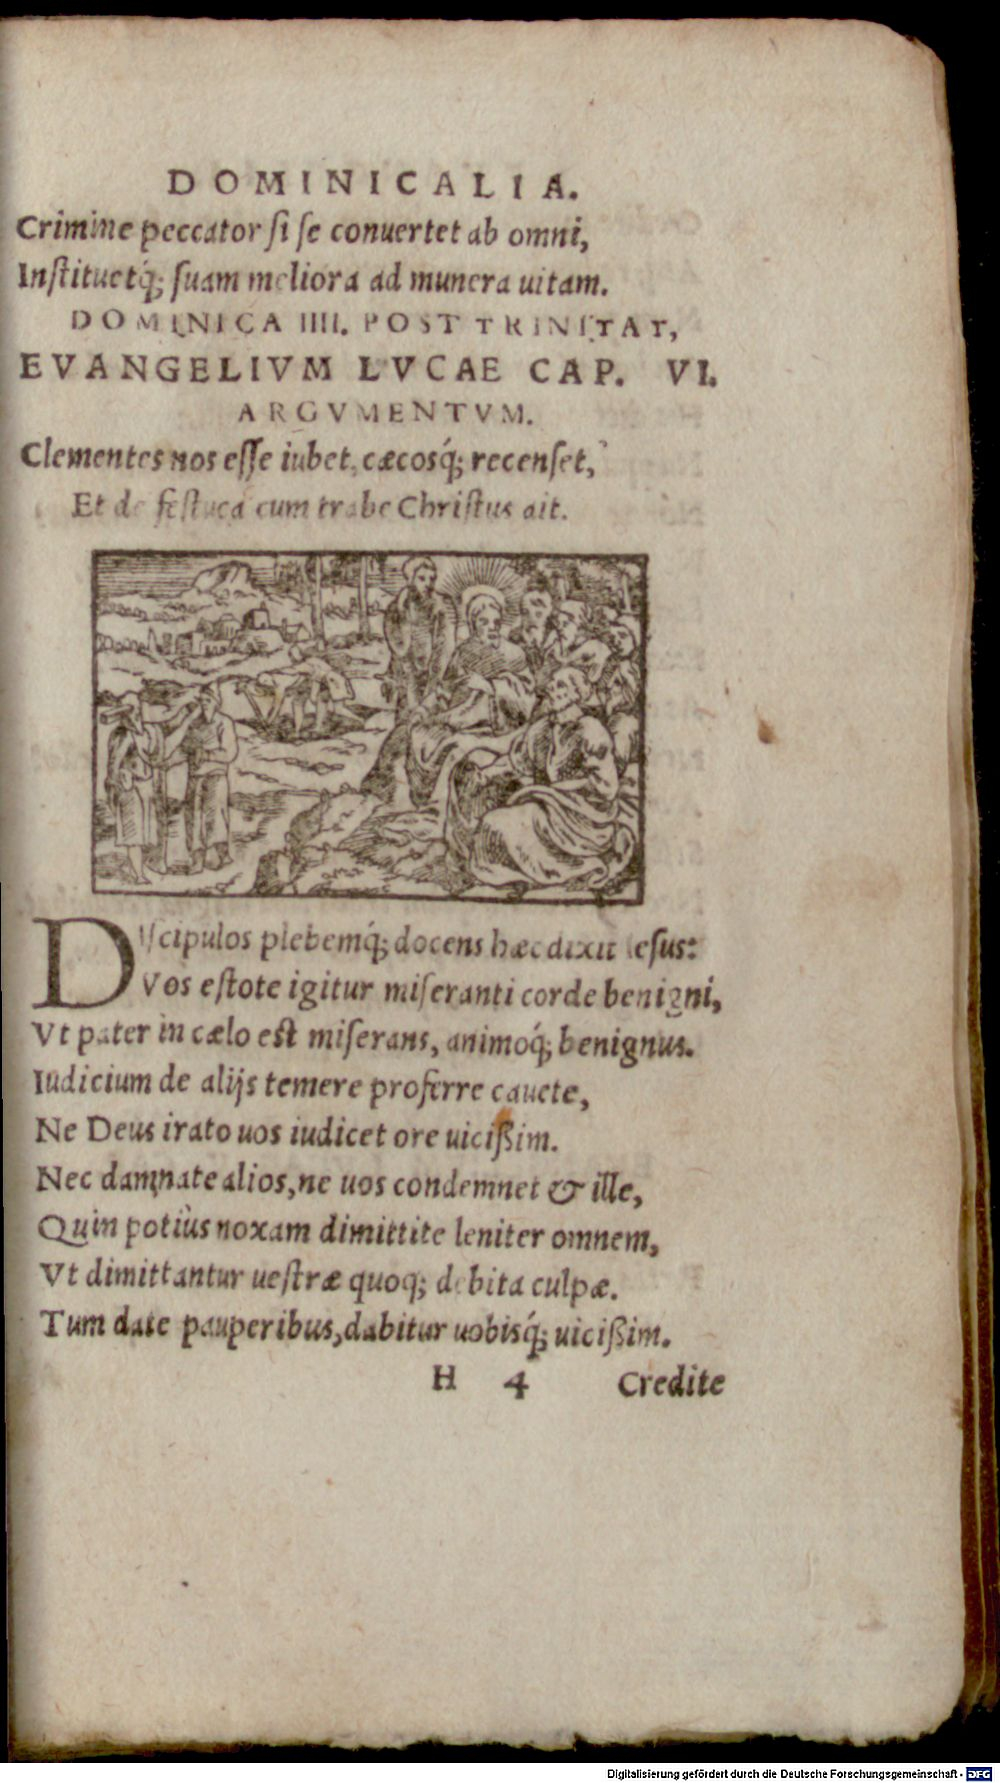 DOMINICALIA.
Crimine peccator ſi ſe conuertet ab omni,
Inſtituetq́; ſuam meliora ad munera uitam.
DOMINICA IIII. POST TRINITAT,
EVANGELIVM LVCAE CAP. VI.
ARGVMENTVM.
Clementes nos eſſe iubet, cæcosq́; recenſet,
Et de feſtuca cum trabe Chriſtus ait.
Diſcipulos plebemq́; docens hæc dixit Ieſus:
Vos eſtote igitur miſeranti corde benigni,
Vt pater in cælo est miſerans, animoq́; benignus.
Iudicium de alijs temere proferre cauete,
Ne Deus irato uos iudicet ore uicißim.
Nec damnate alios, ne uos condemnet & ille,
Quin potiùs noxam dimittite leniter omnem,
Vt dimittantur ueſtræ quoq; debita culpæ.
Tum date pauperibus, dabitur uobisq́; uicißim.
H 4 Credite
Digitalisierung gefördert durch die Deutsche Forschungsgemeinschaft - DFG